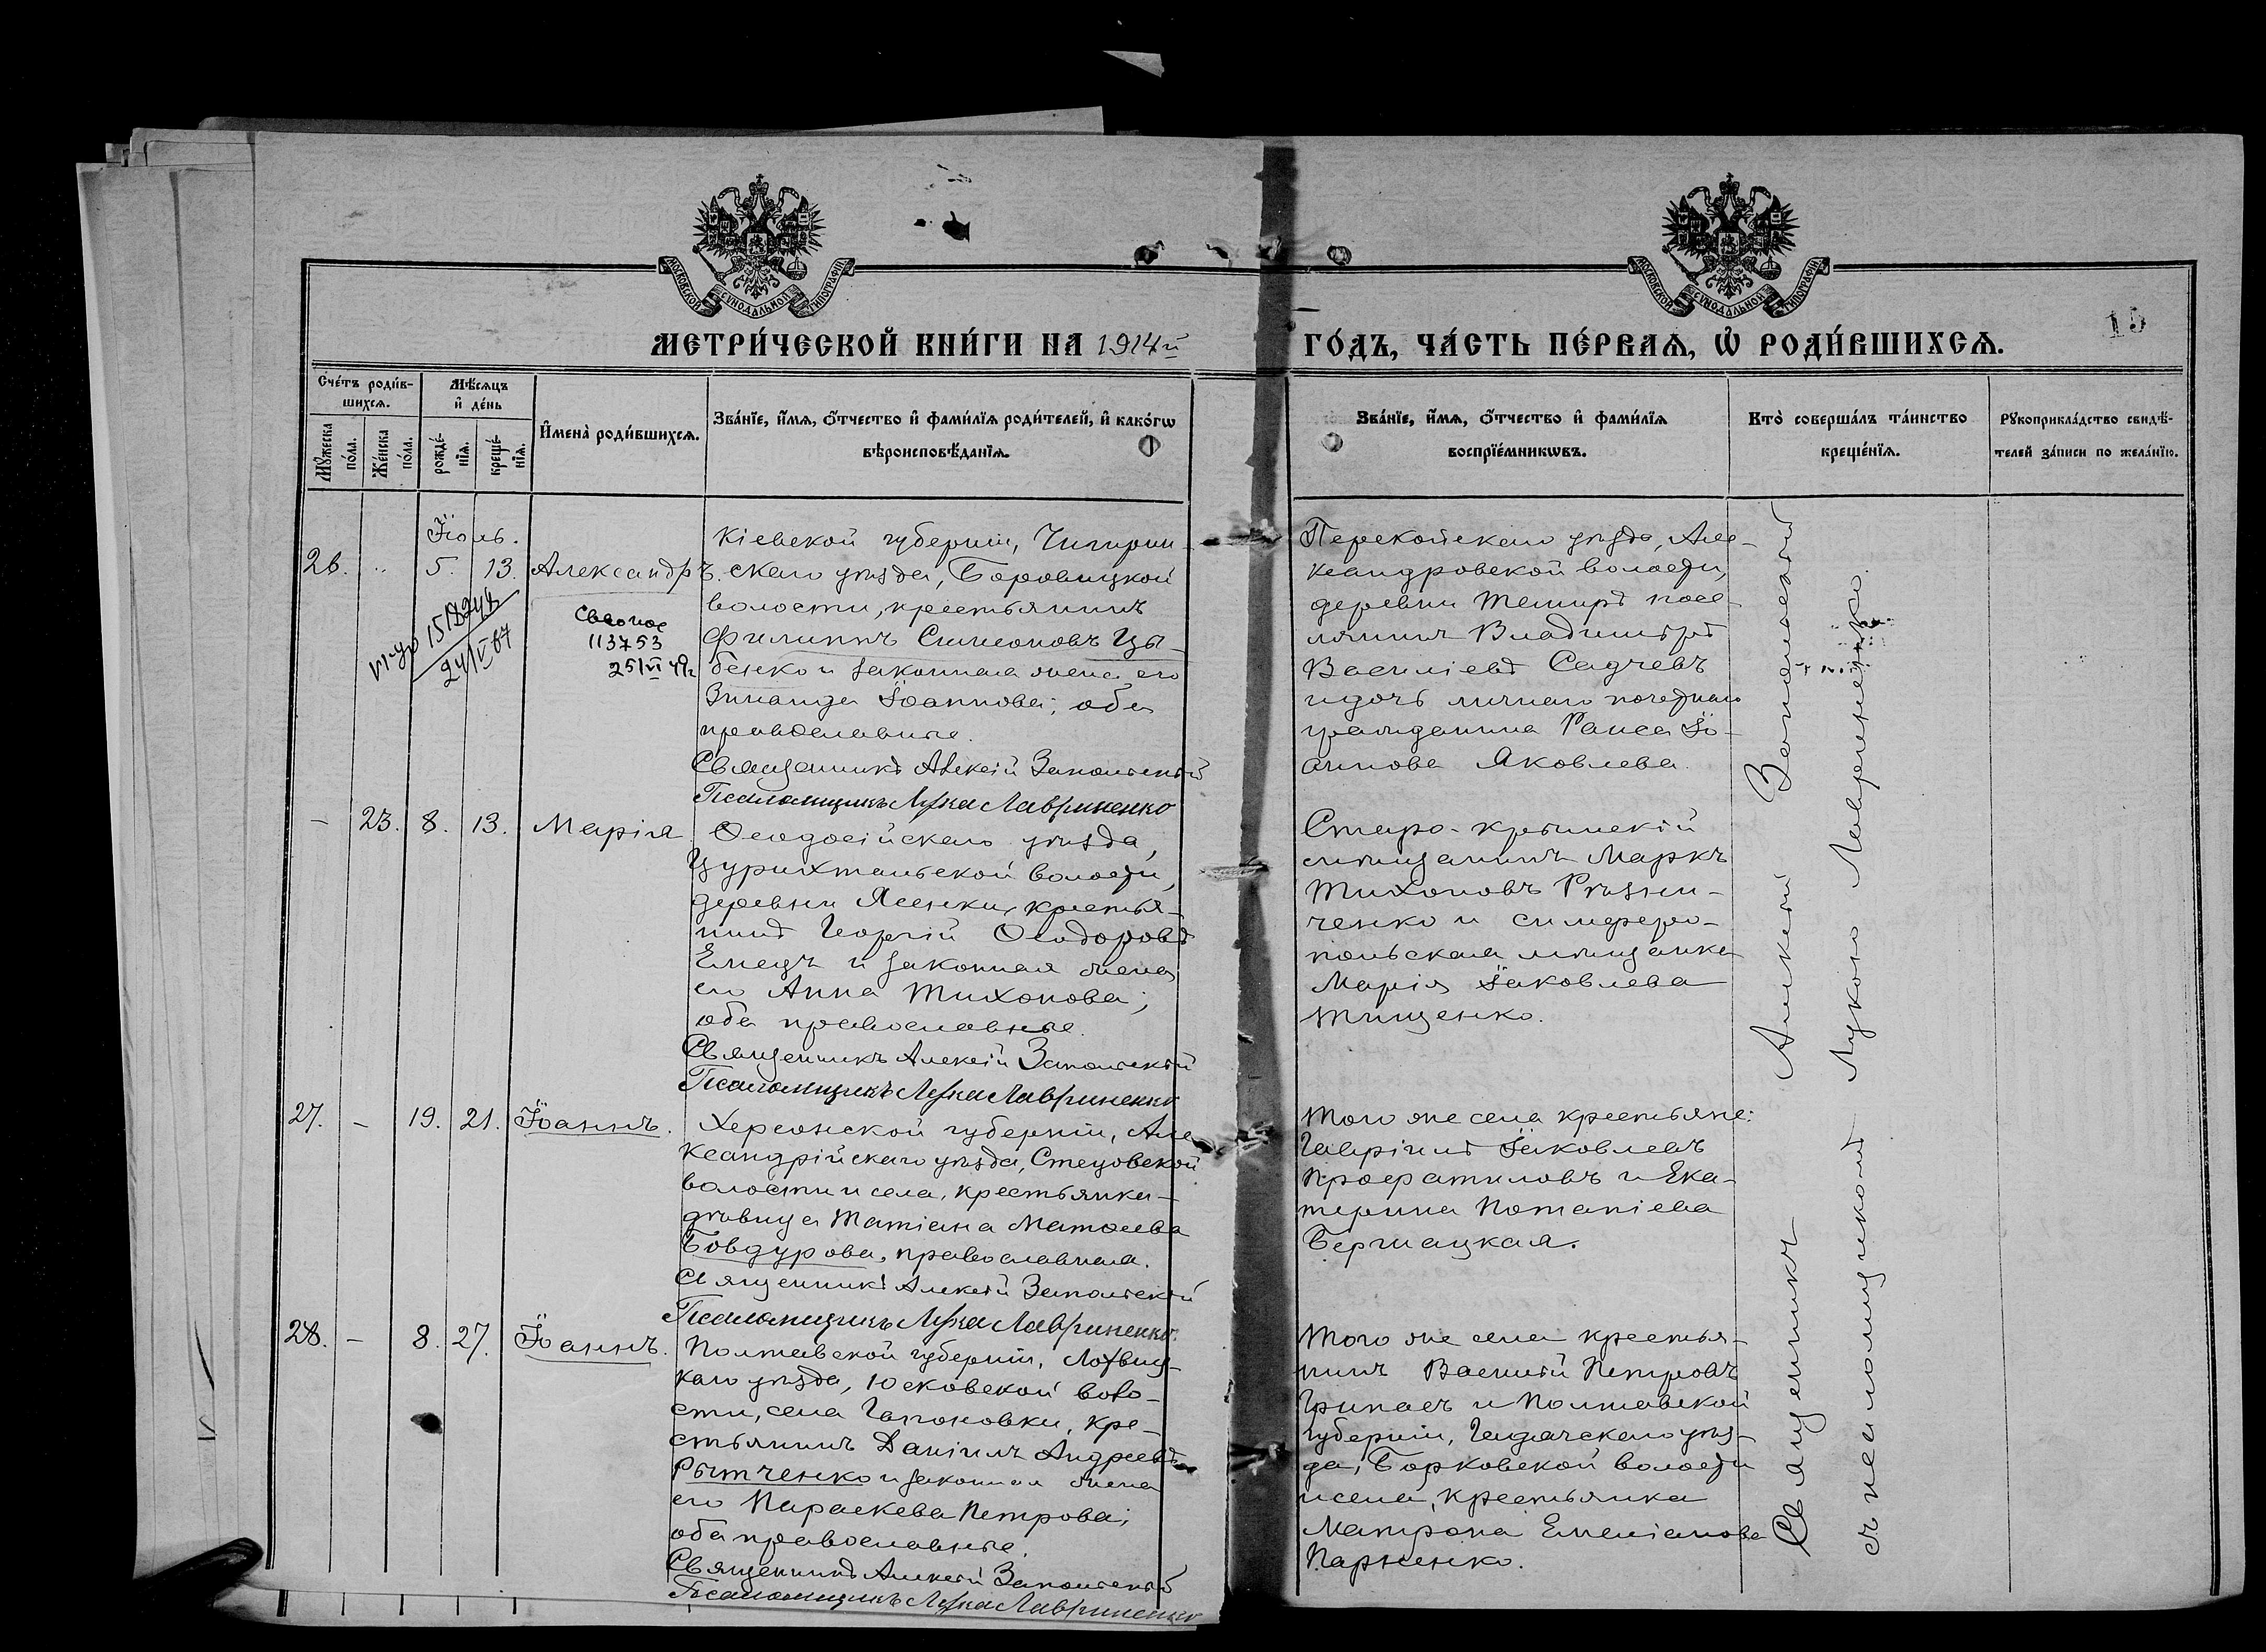 МОСКОВСКОЙ СѴНОДАЛЬНОЙ ТИПОГРАФІИ
МОСКОВСКОЙ СѴНОДАЛЬНОЙ ТИПОГРАФІИ
МЕТРИ́ЧЕСКОЙ КНИ́ГИ НА 1914й
ГО́ДЪ, ЧА́СТЬ ПЕ́РВАѦ, Ѡ҆ РОДИ́ВШИХСѦ.
15
Сче́тъ роди́в-
шихсѧ.
Мѣ́сѧцъ
и҆ де́нь
Мꙋ́жеска
по́ла.
Же́нска
по́ла.
рожде́-
нїѧ.
креще́-
нїѧ.
И҆мена̀ роди́вшихсѧ.
Зва́нїе, и҆́мѧ, ѻ҆́тчество и҆ фами́лїѧ роди́телей, и҆ како́гѡ
вѣроисповѣ́данїѧ.
Зва́нїе, и҆́мѧ, ѻ҆́тчество и҆ фами́лїѧ
воспрїе́мникѡвъ.
Кто̀ соверша́лъ та́инство
креще́нїѧ.
Рꙋкоприкла́дство свидѣ́-
телей за́писи по жела́нїю.
Іюль.
26. " 5. 13. Александръ.
Кіевской губерніи, Чигирин-
скаго уѣзда, Боровицкой
волости, крестьянинъ
Филиппъ Симеоновъ Цы-
бенко и законная жена его
Зинаида Іоаннова; оба
православные.
Священникъ Алексій Запольскій
Псаломщикъ Лука Лавриненко
113753
25/VI
24/IV 67
Перекопскаго уѣзда, Але-
ксандровской волости,
деревни Темиръ посе-
лянинъ Владиміръ
Василіевъ Садчевъ
и дочь личнаго почетнаго
гражданина Раиса Іо-
аннова Яковлева.
– 23. 8. 13. Марія
Ѳеодосійскаго уѣзда,
Цурихтальской волости,
деревни Ясенки, крестья-
нинъ Георгій Ѳеодоровъ
Емецъ и законная жена
его Анна Тихонова;
оба православные.
Священникъ Алексій Запольскій
Псаломщикъ Лука Лавриненко
Старо-крымскій
мѣщанинъ Маркъ
Тихоновъ
ченко и симферо-
польская мѣщанка
Марія Іаковлева
Тищенко.
27. – 19. 21. Іоаннъ.
Херсонской губерніи, Але-
ксандрійскаго уѣзда, Стецовской
волости и села, крестьянка-
дѣвица Татіана Матѳеева
Бовдурова, православная.
Священникъ Алексій Запольскій
Псаломщикъ Лука Лавриненко.
Того же села крестьяне:
Гавріилъ Іаковлевъ
и Ека-
терина Потапіева
Бершацкая.
28. – 8. 27. Іоаннъ.
Полтавской губерніи, Лохвиц-
каго уѣзда, Юсковской воло-
сти, села Гапоновки, кре-
стьянинъ Даніилъ Андреевъ
Рытченко и законная жена
его Параскева Петрова;
оба православные.
Священникъ Алексій Запольскій
Псаломщикъ Лука Лавриненко
Того же села крестья-
нинъ Василій Петровъ
Грипасъ и Полтавской
губерніи, Гадячскаго уѣз-
да, Борковской волости
и села, крестьянка
Матрона Емеліанова
Парненко.
Священникъ Алексій Запольскій
съ псаломщикомъ Лукою Лавриненко.